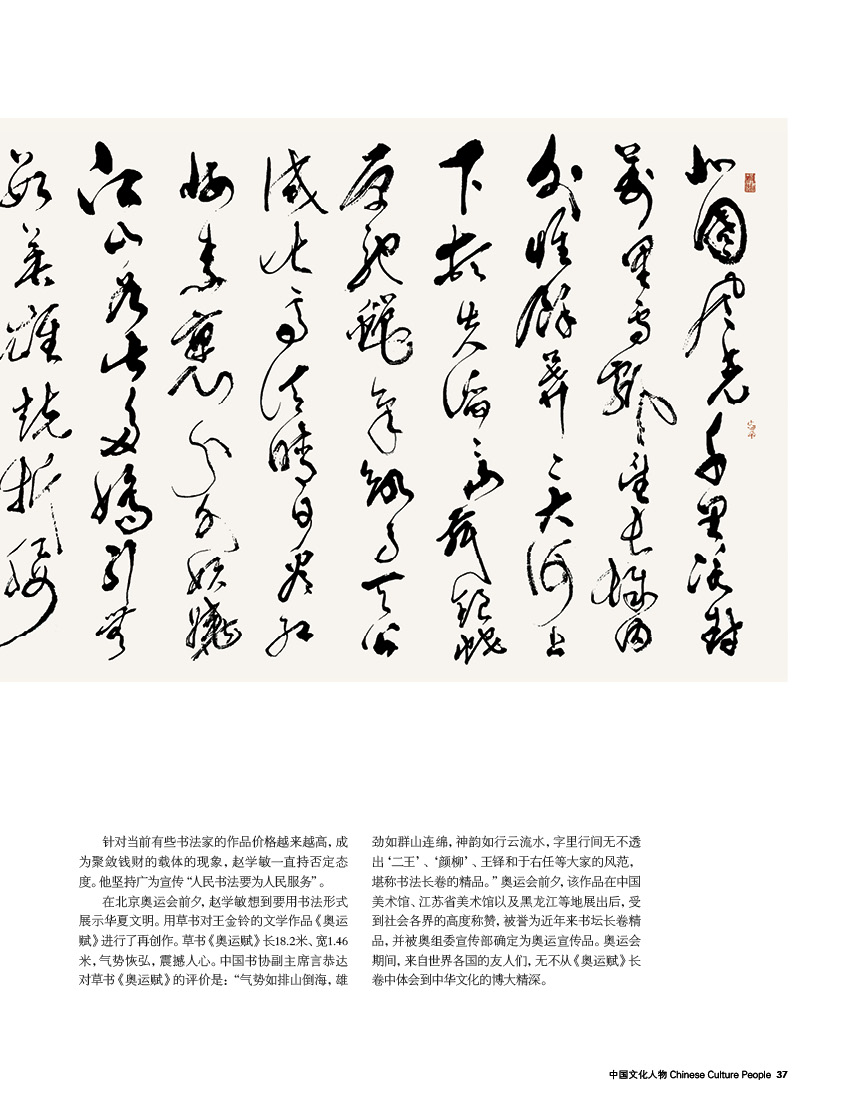 北國風光千里冰封
萬里雪飄望長城內
外惟餘莽〻大河上
下頓失滔〻山舞銀蛇
原馳蠟象欲與天公
試比高須晴日看紅
裝素裹分外妖嬈
江山如此多嬌引無
數英雄競折腰
针对当前有些书法家的作品价格越来越高，成
为聚敛钱财的载体的现象，赵学敏一直持否定态
度。他坚持广为宣传“人民书法要为人民服务”。
在北京奥运会前夕，赵学敏想到要用书法形式
展示华夏文明。用草书对王金铃的文学作品《奥运
赋》进行了再创作。草书《奥运赋》长18.2米、宽1.46
米，气势恢弘，震撼人心。中国书协副主席言恭达
对草书《奥运赋》的评价是：“气势如排山倒海，雄
劲如群山连绵，神韵如行云流水，字里行间无不透
出‘二王’、‘颜柳’、王铎和于右任等大家的风范，
堪称书法长卷的精品。”奥运会前夕，该作品在中国
美术馆、江苏省美术馆以及黑龙江等地展出后，受
到社会各界的高度称赞，被誉为近年来书坛长卷精
品，并被奥组委宣传部确定为奥运宣传品。奥运会
期间，来自世界各国的友人们，无不从《奥运赋》长
卷中体会到中华文化的博大精深。
中国文化人物 Chinese Culture People 37